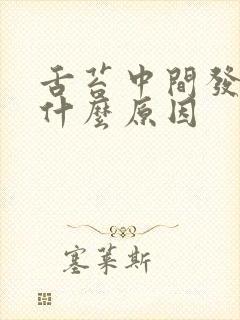 舌苔中間發
什麼原因
塞萊斯